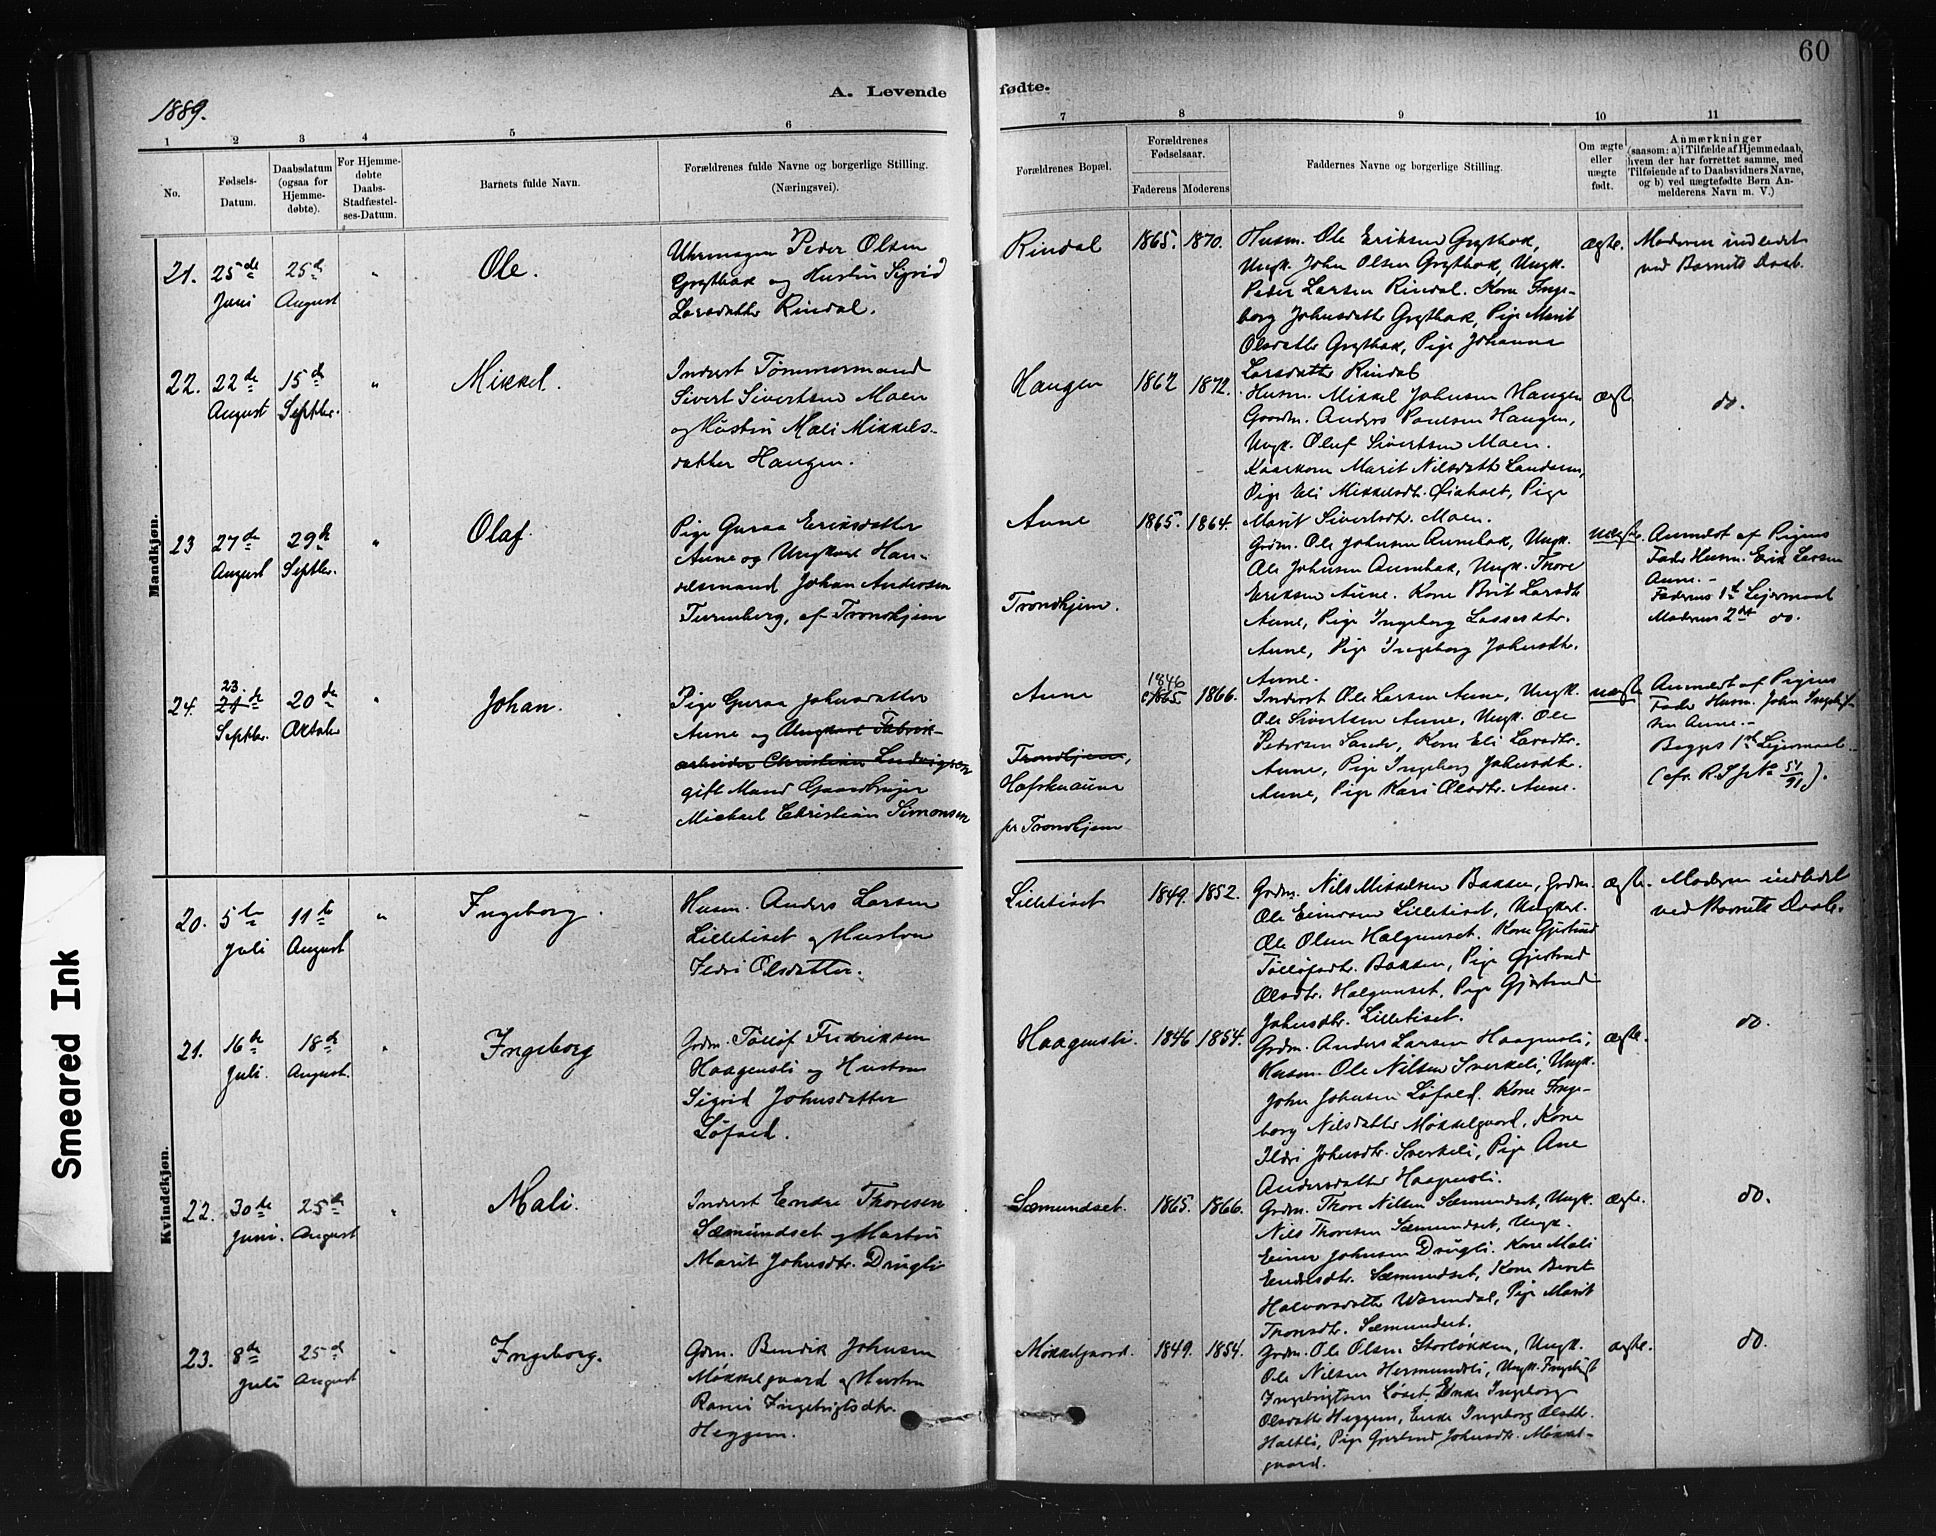 60
1889.
A. Levende fødte.
1 2 3 4 5 6 7 8 9 10 11
No.
Fødsels-Datum.
Daabsdatum (ogsaa for Hjemmedøbte).
For Hjemmedøbte Daabs-Stadfæstelses-Datum.
Barnets fulde Navn.
Forældrenes fulde Navne og borgerlige Stilling. (Næringsvei).
Forældrenes Bopæl.
Forældrenes Fødselsaar.
Faderens Moderens
Faddernes Navne og borgerlige Stilling.
Om ægte eller uægte født.
Anmærkninger
(saasom: a) i Tilfælde af Hjemmedaab,
hvem der har forrettet samme, med
Tilføiende af to Daabsvidners Navne,
og b) ved uægtefødte Børn An-
melderens Navn m. V.)
Mandkjøn.
21. 25de Juni
25de August
"
Ole.
Uhrmager Peder Olsen
Grythak og Hustru Sigrid
Larsdatter Rindal.
Rindal
1865. 1870.
Husm. Ole Eriksen Grythak,
Ungk. John Olsen Grythak, Ungk.
Peder Larsen Rindal. Kone Inge-
borg Johnsdatter Grythak, Pige Marit
Olsdatter Grythak, Pige Johanna
Larsdatter Rindal
ægte.
Moderen indledet
ved Barnets Daab.
22. 22de August
15de Septbr.
"
Mikkel.
Inderst Tømmermand
Sivert Sivertsen Moen
og Hustru Mali Mikkels-
datter Haugen.
Haugen
1862 1872.
Husm. Mikkel Johnsen Haugen
Gaardm. Anders Paulsen Haugen,
Ungk. Oluf Sivertsen Moen.
Kaarkone Marit Nilsdatter Landsem,
Pige Eli Mikkelsdtr. Øiaholt, Pige
Marit Sivertsdtr. Moen.
ægte.
do.
23 27de August
29de Septbr.
"
Olaf
Pige Guraa Eriksdatter
Aune og Ungkarl Han-
delsmand Johan Andersen
Turenberg, af Trondhjem
Aune
Trondhjem.
1865. 1864.
Grdm. Ole Johnsen Aunebak, Ungk.
Ole Johnsen Aunebak, Ungk. Thore
Eriksen Aune. Kone Brit Larsdtr
Aune, Pige Ingeborg Lassesdtr.
Aune, Pige Ingeborg Johnsdtr.
Aune.
uægte
Anmeldt af Pigens
Fader Husm. Erik Larsen
Aune.-
Faderens 1ste Leiermaal
Moderens 2det do.
24. 23de Septbr.
20de Oktober
"
Johan.
Pige Guraa Johnsdatter
Aune og Ungkarl Fabrik-
arbeider Christian Ludvigsen
gift Mand Gaardbruger
Michael Christian Simonsen
Aune
Trondhjem,
Hofsknaune
pr Trondhjem
1846
1865 1866.
Inderst Ole Larsen Aune, Ungk.
Ole Sivertsen Aune, Ungk. Ole
Petersen Sande, Kone Eli Larsdtr.
Aune, Pige Ingeborg Johnsdtr.
Aune, Pige Kari Olsdtr. Aune.
uægte
Anmeldt af Pigens
Fader Husm. John Ingebrigt-
sen Aune.-
Begges 1ste Leiermaal.
(cfr. R.S. J No 51/91).
Kvindekjøn.
20. 5te Juli
11te August
"
Ingeborg.
Husm. Anders Larsen
Lilletiset og Hustru
Ildri Olsdatter.
Lilletiset
1849. 1852.
Grdm. Nils Mikkelsen Bakken, Grdm.
Ole Einersen Lilletiset, Ungkarl.
Ole Olsen Halgunset. Kone Gjertrud
Tøllefsdtr. Bakken, Pige Gjertrud
Olsdtr. Halgunset, Pige Gjertrud
Johnsdtr. Lilletiset.
ægte.
Moderen indledet
ved Barnets Daab.
21. 16de Juli.
18de August.
"
Ingeborg
Grdm. Tøllef Fredriksen
Haagensli og Hustru
Sigrid Johnsdatter
Løfald.
Haagensli.
1846 1854.
Grdm. Anders Larsen Haagensli,
Husm. Ole Nilsen Sverkeli, Ungk.
John Johnsen Løfald. Kone Inge-
borg Nilsdatter Møkkelgaard, Kone
Ildri Johnsdtr. Sverkeli, Pige Ane
Andersdatter Haagensli.
ægte.
do.
22. 30te Juni.
25de August
"
Mali.
Inderst Endre Thoresen
Sæmundset og Hustru
Marit Johnsdtr. Drugli
Sæmundset.
1865. 1866.
Grdm. Thore Nilsen Sæmundset, Ungk.
Nils Thoresen Sæmundset, Ungk.
Einer Johnsen Drugli. Kone Mali
Endresdtr. Sæmundset, Kone Berit
Halvorsdatter Warmdal, Pige Marit
Thoresdtr. Sæmundset.
ægte.
do.
23. 8de Juli
25de August
"
Ingeborg.
Grdm. Bendik Johnsen
Møkkelgaard og Hustru
Ranei Ingebrigtsdtr.
Heggem.
Møkkelgaard.
1849. 1854.
Grdm. Ole Olsen Storløkken, Ungk.
Ole Nilsen Hermundsli, Ungk. Ingebrigt
Ingebrigtsen Løset Enke Ingeborg
Olsdatter Heggem, Enke Ingeborg Olsdtr.
Holtli, Pige Gjertrud Johnsdtr. Møkkel-
gaard.
ægte.
do.
Smeared Ink